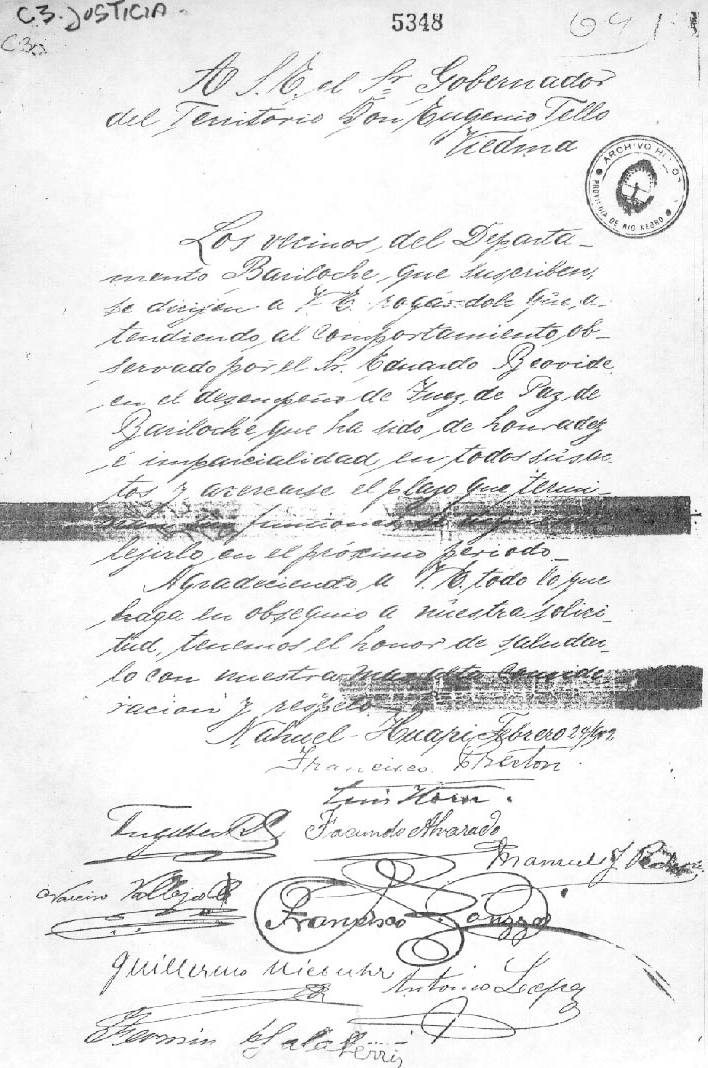 C3. JUSTICIA.
C30
5348
A S. E. el Sr. Gobernador
del Territorio Don Eugenio Tello
Viedma
ARCHIVO HI
PROVINCIA DE RIO NEGRO
Los vecinos del Departa-
mento Bariloche, que suscriben,
se dirijen a V. E. rogándole que, a-
tendiendo al comportamiento ob-
servado por el Sr. Eduardo Beovide,
en el desempeño de Juez de Paz de
Bariloche que ha sido de honradez
é imparcialidad en todos sus ac-
tos y acercarse el plazo que termi-
funciones
lejirlo en el próximo período_
Agradeciendo a V. E. todo lo que
haga en obsequio a nuestra solici-
tud, tenemos el honor de saludar-
lo con nuestra mas alta conside-
racion y respeto
Nahuel-Huapi Febrero 24/902
Francisco
Luis Horn.
Facundo Alvarado
Manuel J.
Vallejo
Francisco
Guillermo
Antonio Lopez
Fermin Salaberris